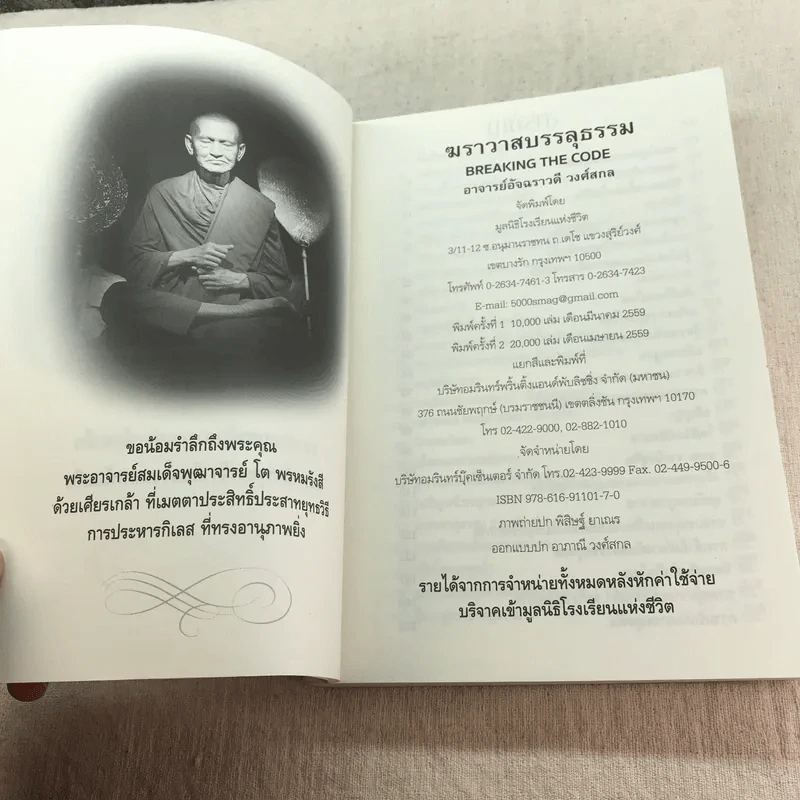 ขอน้อมรำลึกถึงพระคุณ
พระอาจารย์สมเด็จพุฒาจารย์ โต พรหมรังสี
ด้วยเศียรเกล้า ที่เมตตาประสิทธิ์ประสาทยุทธวิธี
การประหารกิเลส ที่ทรงอานุภาพยิ่ง
ฆราวาสบรรลุธรรม
BREAKING THE CODE
อาจารย์อัจฉราวดี วงศ์สกล
จัดพิมพ์โดย
มูลนิธิโรงเรียนแห่งชีวิต
3/11-12 ซ.อนุมานราชทน ถ.เดโช แขวงสุริย์วงศ์
เขตบางรัก กรุงเทพฯ 10500
โทรศัพท์ 0-2634-7461-3 โทรสาร 0-2634-7423
E-mail: 5000smag@gmail.com
พิมพ์ครั้งที่ 1 10,000 เล่ม เดือนมีนาคม 2559
พิมพ์ครั้งที่ 2 20,000 เล่ม เดือนเมษายน 2559
แยกสีและพิมพ์ที่
บริษัทอมรินทร์พริ้นติ้งแอนด์พับลิชชิ่ง จำกัด (มหาชน)
376 ถนนชัยพฤกษ์ (บรมราชชนนี) เขตตลิ่งชัน กรุงเทพฯ 10170
โทร 02-422-9000, 02-882-1010
จัดจำหน่ายโดย
บริษัทอมรินทร์บุ๊คเซ็นเตอร์ จำกัด โทร.02-423-9999 Fax. 02-449-9500-6
ISBN 978-616-91101-7-0
ภาพถ่ายปก พิสิษฐ์ ยาเณร
ออกแบบปก อาภาณี วงศ์สกล
รายได้จากการจำหน่ายทั้งหมดหลังหักค่าใช้จ่าย
บริจาคเข้ามูลนิธิโรงเรียนแห่งชีวิต